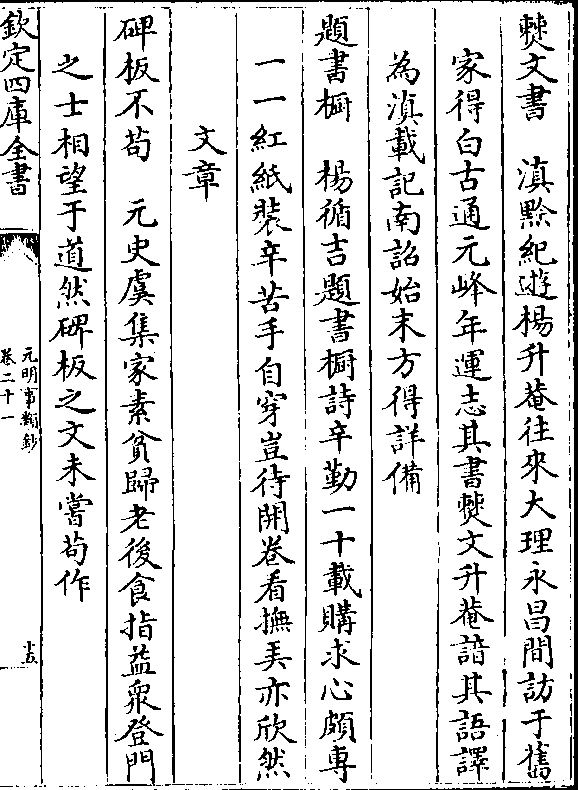 僰文書　滇黔紀遊楊升菴往來大理永昌間訪于舊
家得白古通元峰年運志其書僰文升菴諳其語譯
為滇載記南詔始末方得詳備
題書橱　楊循吉題書橱詩辛勤一十載購求心頗專
一一紅紙裝辛苦手自穿豈待開卷看撫弄亦欣然
文章
碑板不苟　元史虞集家素貧歸老後食指益衆登門
之士相望于道然碑板之文未嘗苟作
欽定四庫全書
元明事類鈔
卷二十一
十五